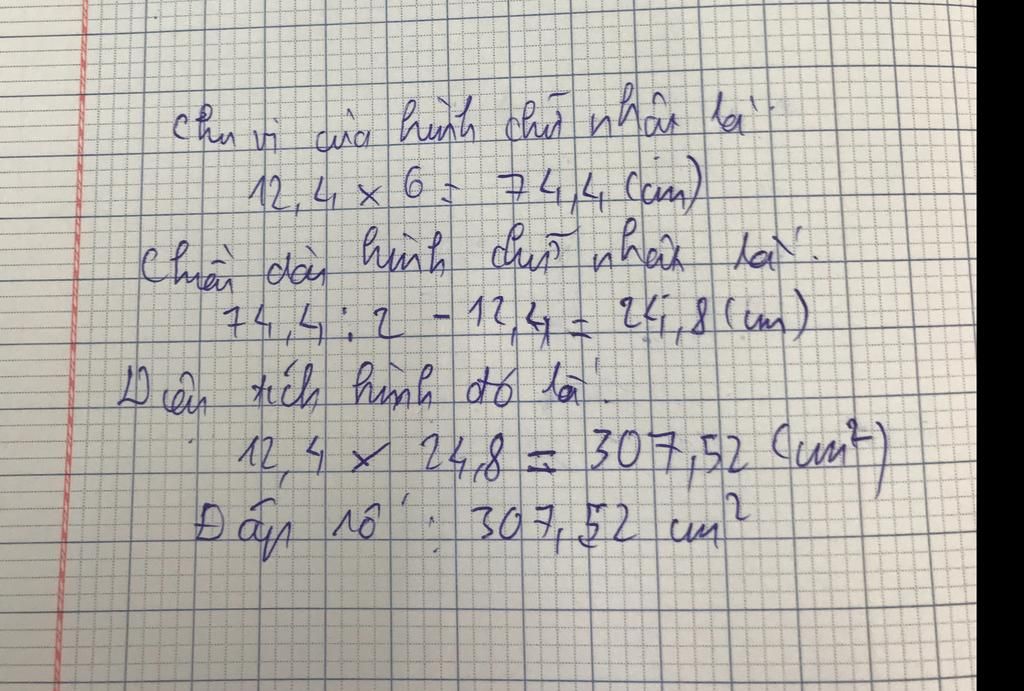 Chu vi của hình chữ nhật là:
12,4 x 6 = 74,4 (cm)
Chiều dài hình chữ nhật là:
74,4 : 2 - 12,4 = 24,8 (cm)
Diện tích hình đó là:
12,4 x 24,8 = 307,52 (cm²)
Đáp số : 307,52 cm²